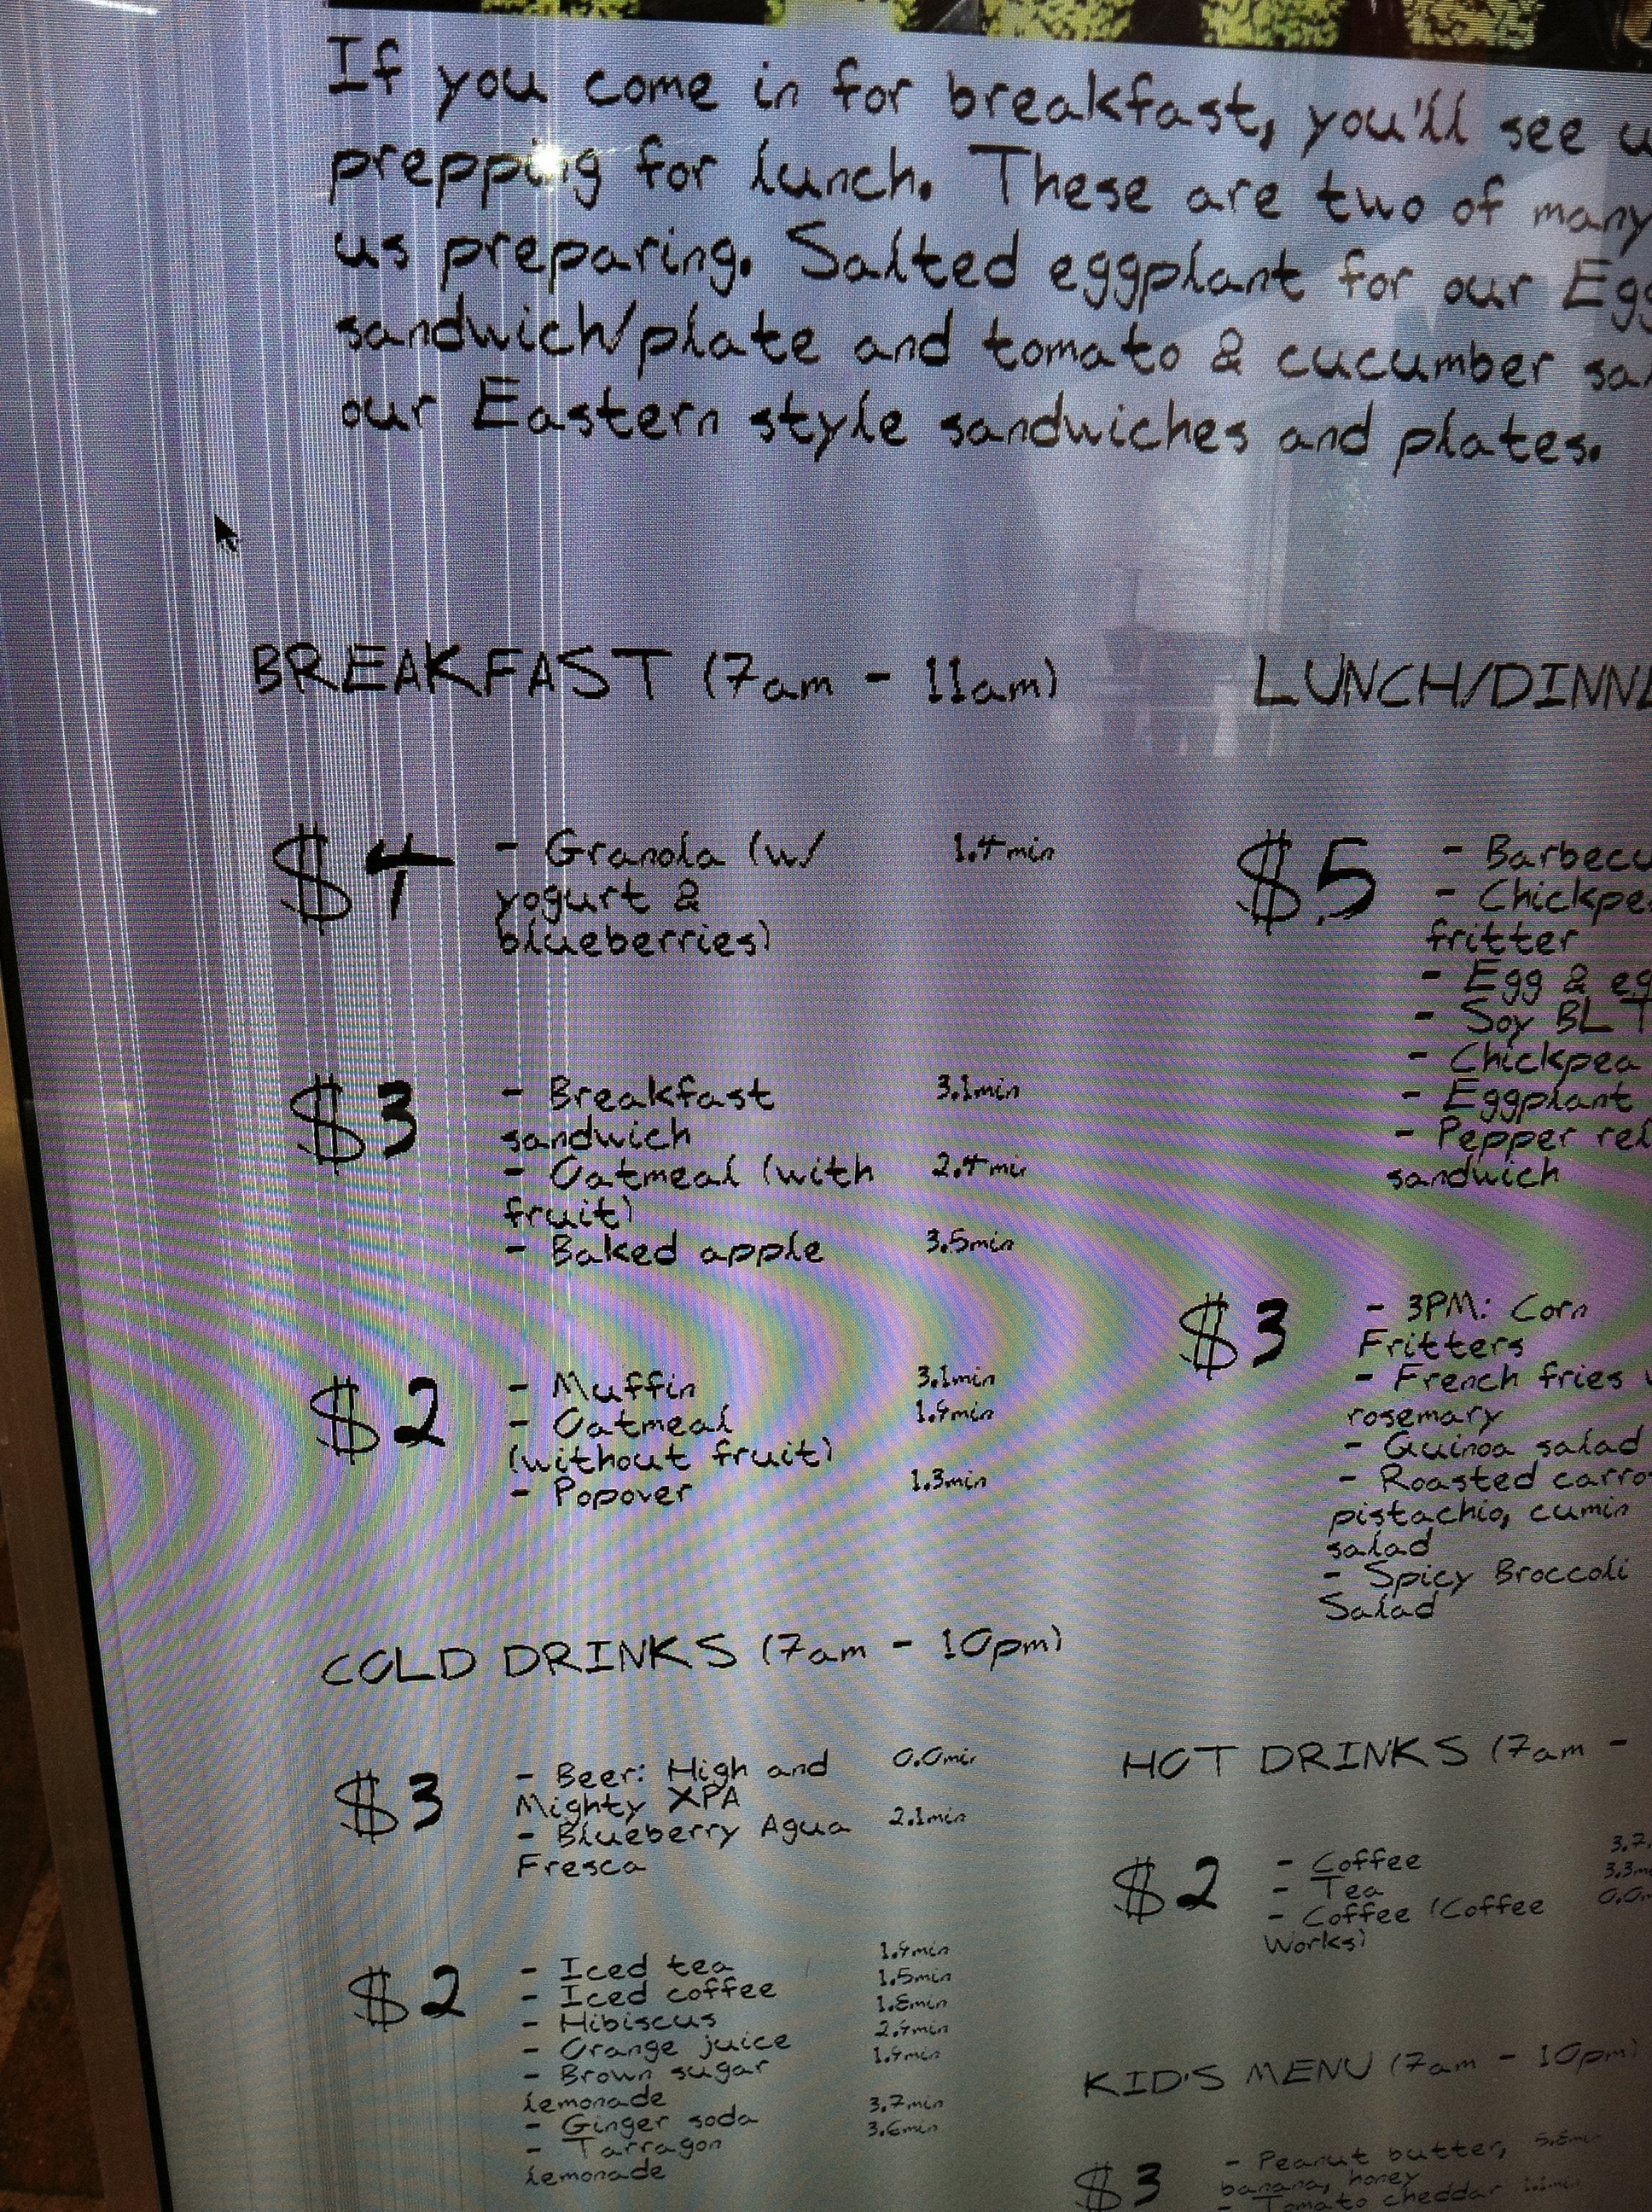 If you come in for breakfast, you'll see
prepping for lunch. These are two of many
us preparing. Salted eggplant for our
sandwich/plate and tomato & cucumber
our Eastern style sandwiches and plates.
BREAKFAST (7am - 11am)
$4
- Granola (w/ 1.4min
yogurt &
blueberries)
$3
- Breakfast 3.1min
sandwich
- Oatmeal (with 2.4min
fruit)
- Baked apple 3.5min
$2
- Muffin 3.1min
- Oatmeal 1.9min
(without fruit)
- Popover 1.3min
LUNCH/DINNE
$5
- Barbecu
- Chickpe
fritter
- Egg & eg
- Soy BLT
- Chickpea
- Eggplant
- Pepper rel
sandwich
$3
- 3PM: Corn
Fritters
- French fries
rosemary
- Quinoa salad
- Roasted carro
pistachio, cumin
salad
- Spicy Broccoli
Salad
COLD DRINKS (7am - 10pm)
$3
- Beer: High and 0.0min
Mighty XPA
- Blueberry Agua 2.1min
Fresca
$2
- Iced tea 1.9min
- Iced coffee 1.5min
- Hibiscus 1.8min
- Orange juice 2.9min
- Brown sugar 1.9min
lemonade
- Ginger soda 3.7min
- Tarragon 3.6min
lemonade
HOT DRINKS (7am -
$2
- Coffee 3.7
- Tea 3.3m
- Coffee (Coffee 0.0
Works)
KID'S MENU (7am - 10pm)
$3
- Peanut butter,
banana, honey
- Tomato cheddar